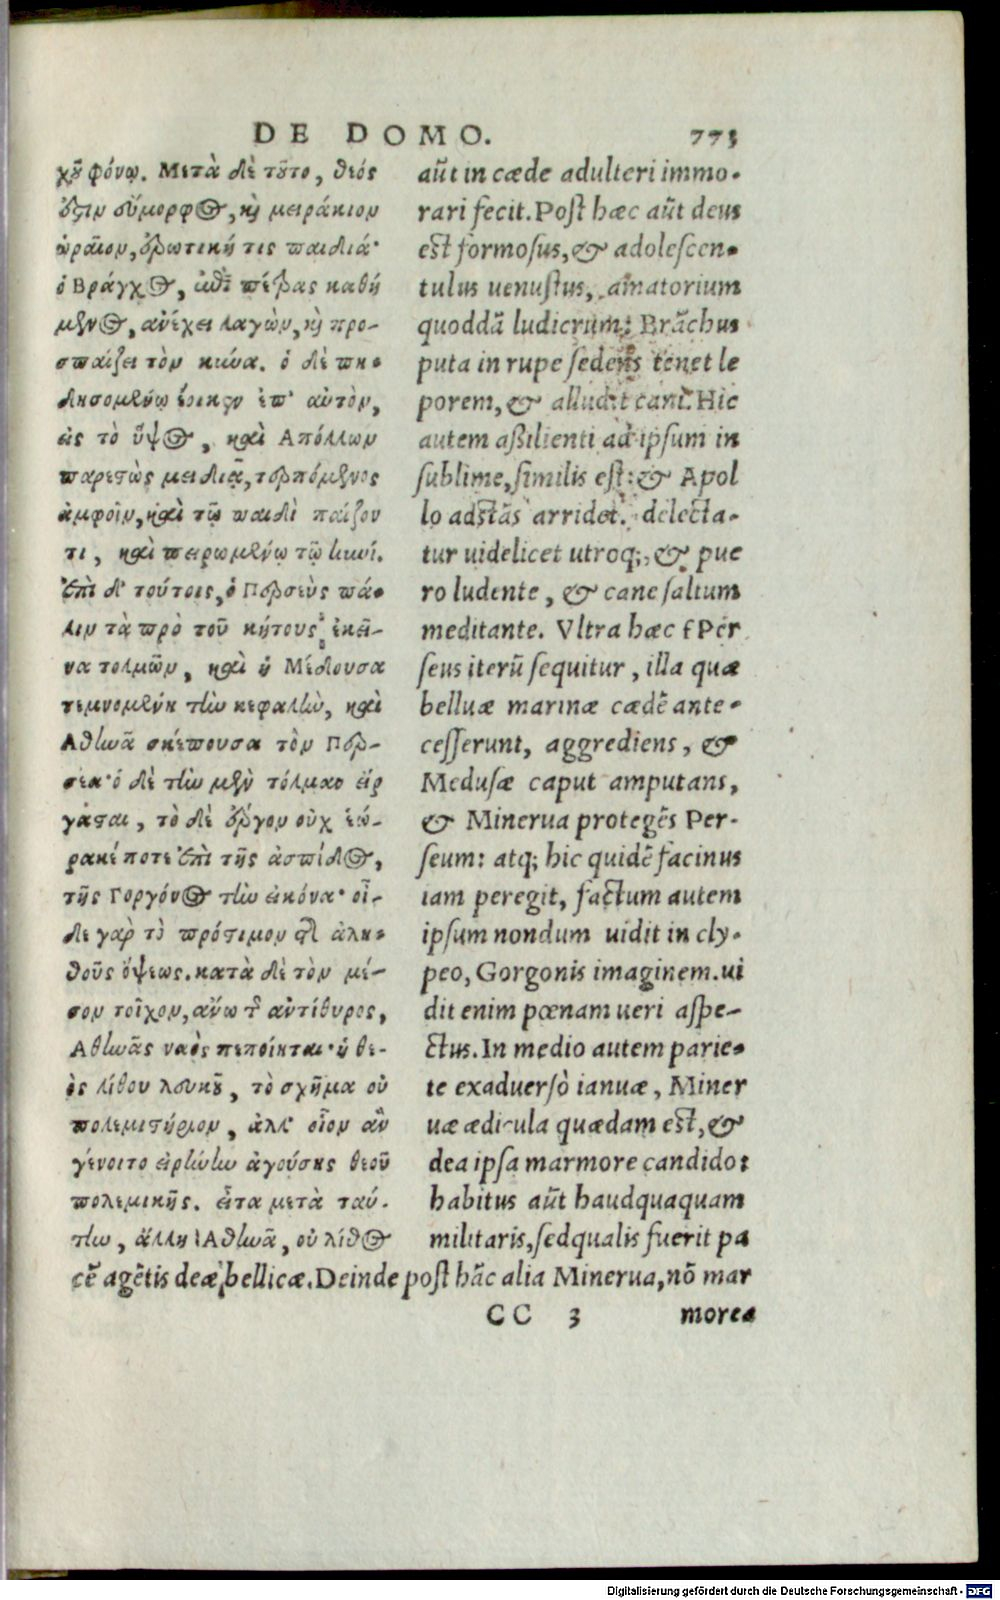 DE DOMO. 773
χοῦ φόνῳ. Μετὰ δὲ τοῦτο, θεός
ὅστιν εὔμορφος, καὶ μειράκιον
ὡραῖον, ἐρωτική τις παιδιά·
ὁ Βράγχος, ἐπὶ πέτρας καθή
μενος, ἀνέχει λαγὼν, καὶ προ-
σπαίζει τὸν κύνα. ὁ δὲ πη-
δησομένῳ ἔοικεν ἐπ' αὐτὸν,
εἰς τὸ ὕψος, καὶ Απόλλων
παρεστὼς μειδιᾷ, τερπόμενος
ἀμφοῖν, καὶ τῷ παιδὶ παίζον
τι, καὶ πειρωμένῳ τῷ κυνί.
Ἐπὶ δὲ τούτοις, ὁ Περσεὺς πά-
λιν τὰ πρὸ τοῦ κήτους ἐκεῖ-
να τολμῶν, καὶ ἡ Μέδουσα
τεμνομένη τὴν κεφαλὴν, καὶ
Αθηνᾶ σκέπουσα τὸν Περ-
σέα· ὁ δὲ τὴν μὲν τόλμαν εἴρ
γασται, τὸ δὲ ἔργον οὐχ ἑώ-
ρακέ ποτε ἐπὶ τῆς ἀσπίδος,
τῆς Γοργόνος τὴν εἰκόνα· οἶ-
δε γὰρ τὸ πρόστιμον τῆς ἀλη-
θοῦς ὄψεως. κατὰ δὲ τὸν μέ-
σον τοῖχον, ἄνω τῆς ἀντίθυρος,
Αθηνᾶς ναὸς πεποίηται· ἡ θε-
ὸς λίθου λευκοῦ, τὸ σχῆμα οὐ
πολεμιστήριον, ἀλλ' οἷον ἂν
γένοιτο εἰρήνην ἀγούσης θεοῦ
πολεμικῆς. εἶτα μετὰ ταύ-
την, ἄλλη Αθηνᾶ, οὐ λίθος
aūt in cæde adulteri immo-
rari fecit. Post hæc aūt deus
est formosus, & adolescen-
tulus uenustus, amatorium
quoddā ludicrum: Brāchus
puta in rupe sedens tenet le
porem, & alludit cani. Hic
autem aßilienti ad ipsum in
sublime, similis est: & Apol
lo adstās arridet. delecta-
tur uidelicet utroq;, & pue
ro ludente, & cane saltum
meditante. Vltra hæc Per
seus iterū sequitur, illa quæ
belluæ marinæ cædē ante-
cesserunt, aggrediens, &
Medusæ caput amputans,
& Minerua protegēs Per-
seum: atq; hic quidē facinus
iam peregit, factum autem
ipsum nondum uidit in cly-
peo, Gorgonis imaginem. ui
dit enim pœnam ueri aspe-
ctus. In medio autem parie-
te exaduersò ianuæ, Miner
uæ ædicula quædam est, &
dea ipsa marmore candido:
habitus aūt haudquaquam
militaris, sed qualis fuerit pa
cē agētis deæ bellicæ. Deinde post hāc alia Minerua, nō mar
CC 3 morea
Digitalisierung gefördert durch die Deutsche Forschungsgemeinschaft - DFG